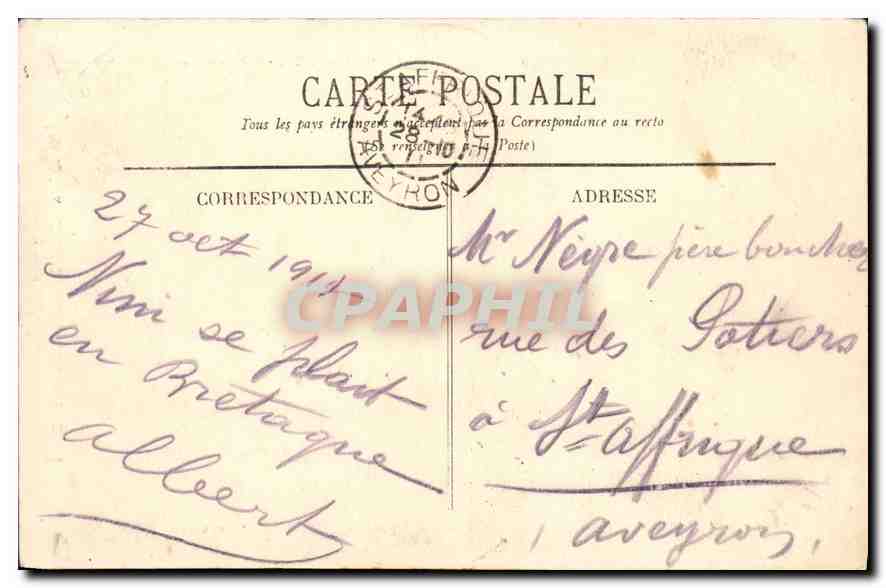 CARTE POSTALE
Tous les pays étrangers n'acceptent pas la Correspondance au recto
(Se renseigner à la Poste)
ST AFFRIQUE
14
28 10
AVEYRON
CORRESPONDANCE
27 oct 191
Nini se plait
en Bretagne
Albert
ADRESSE
Mr Nègre père boucher
rue des Potiers
à St Affrique
Aveyron
CPAPHIL